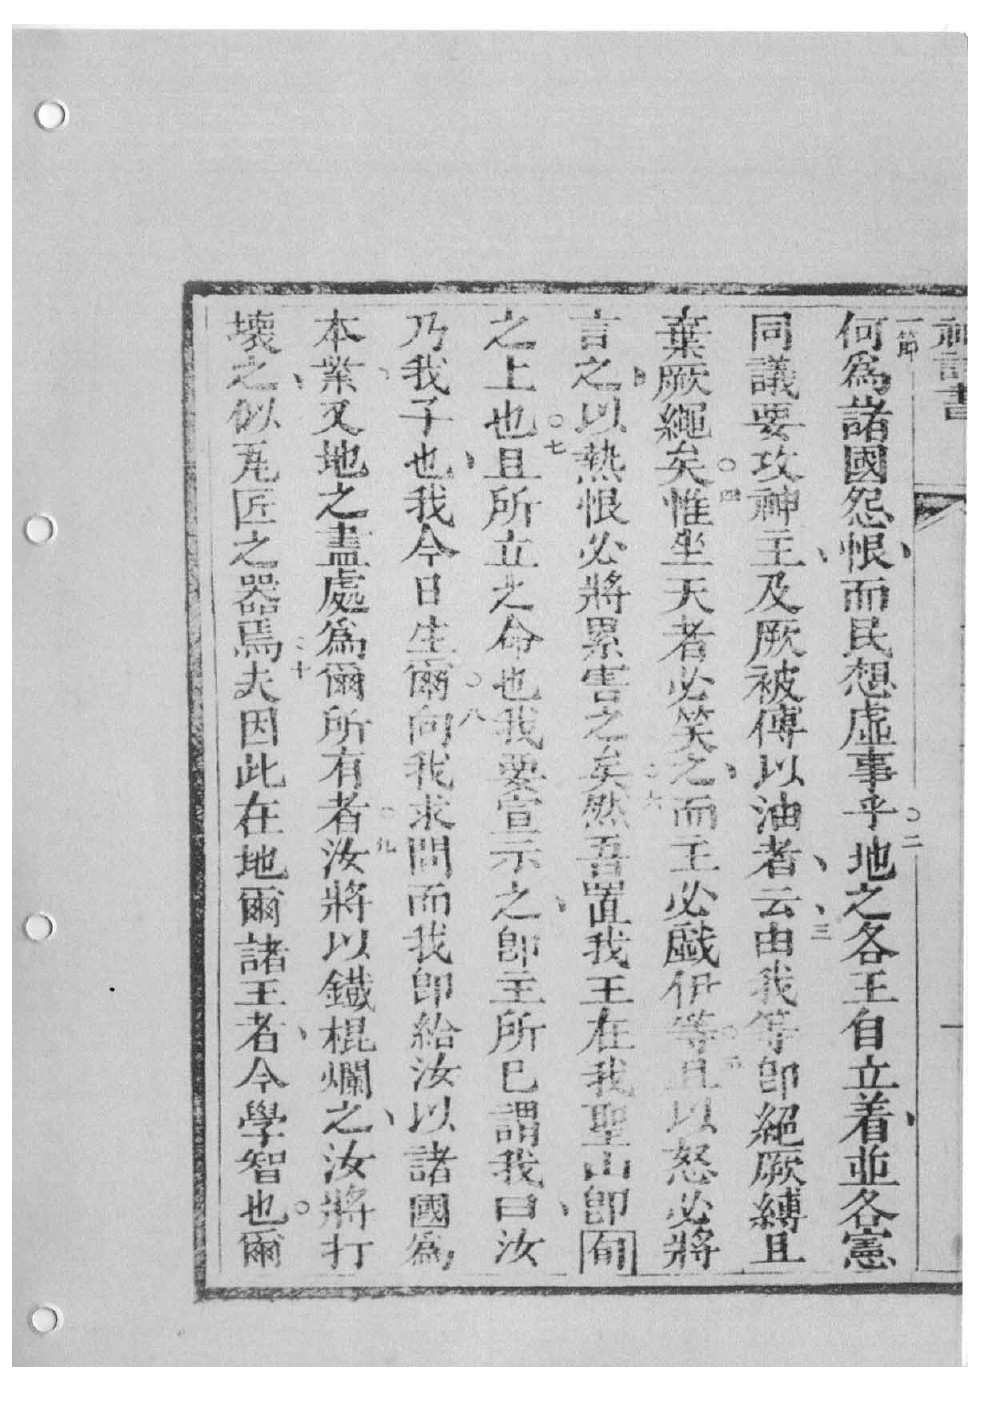 神詩書
一節
何為諸國怨恨、而民想虛事乎○二地之各王自立着、並各憲
同議要攻神主、及厥被傅以油者、云、三由我等即絕厥縛且
棄厥繩矣○四惟坐天者必笑之、而主必戲伊等○五且以怒必將
言之、以熱恨必將累害之矣○六然吾置我王在我聖山即旬
之上也○七且所立之命也我要宣示之、即主所已謂我曰、汝
乃我子也、我今日生爾○八向我求問而我即給汝以諸國為
本業、又地之盡處為爾所有者○九汝將以鐵棍爛之、汝將打
壞之、似瓦匠之器焉○十夫因此在地爾諸王者、今學智也。爾